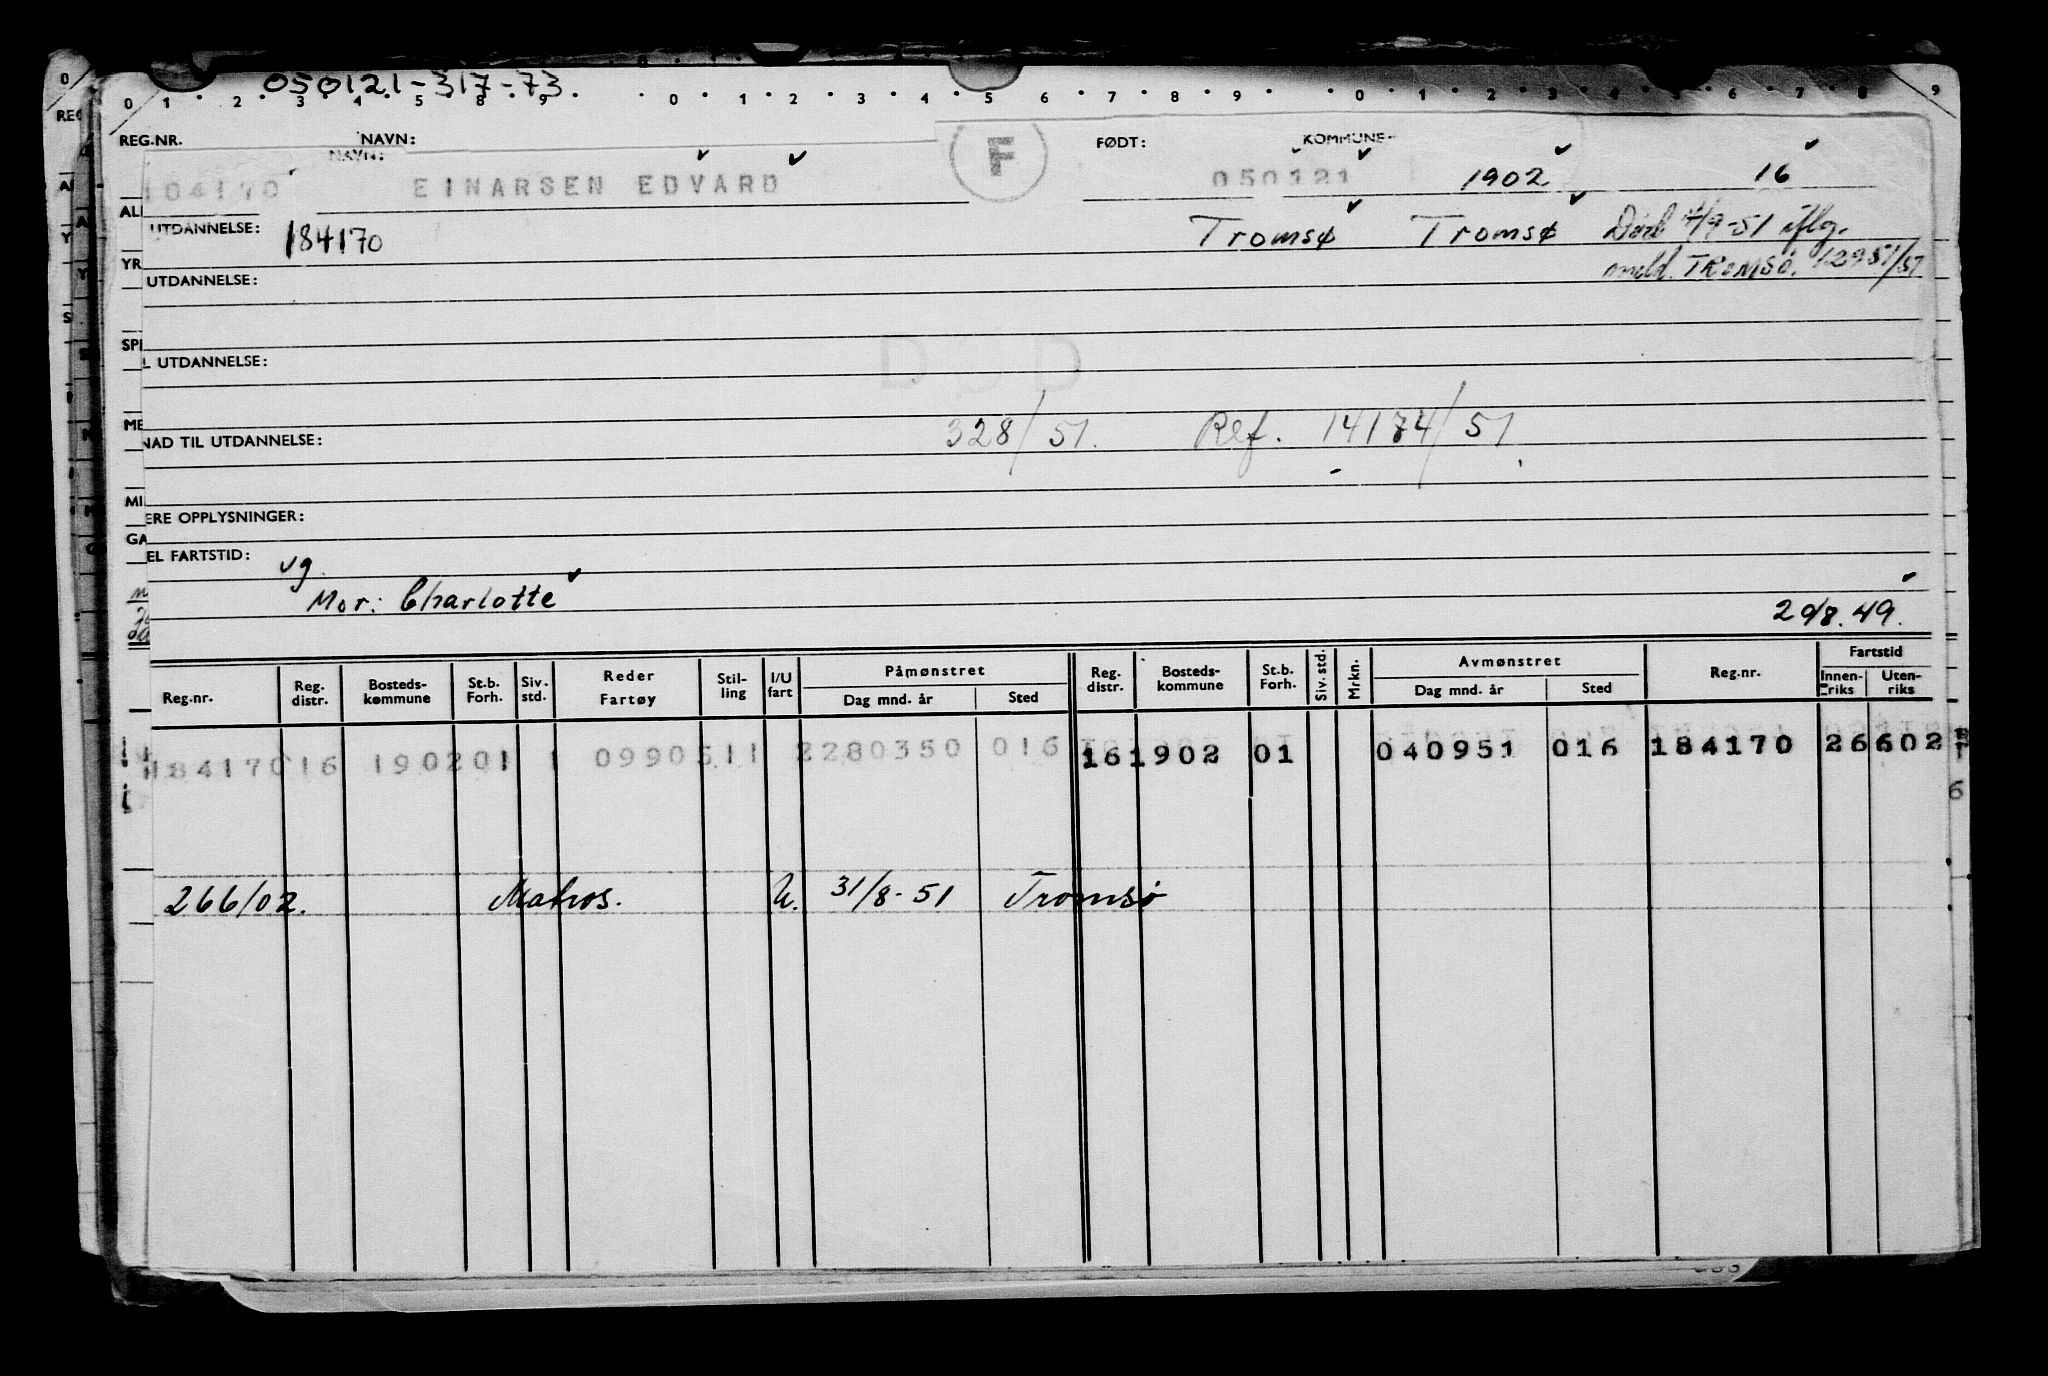 050121-317-73
0 1 2 3 4 5 8 9 0 1 2 3 4 5 6 7 8 9 0 1 2 3 4 5 6 7 8 9
REG.NR. NAVN: F FØDT: KOMMUNE
NAVN:
104170 EINARSEN EDVARD 050121 1902 16
UTDANNELSE: 184170 Tromsø Tromsø Død 4/9-51 iflg.
UTDANNELSE: meld. TROMSØ. 12951/51
L UTDANNELSE: DØD
NAD TIL UTDANNELSE: 328/51. Ref. 14174/51
ERE OPPLYSNINGER:
EL FARTSTID: vg.
Mor: Charlotte 20/8.49.
Reg.nr. Reg. distr. Bosteds-kommune St.b. Forh. Siv. std. Reder Fartøy Stil-ling I/U fart Påmønstret Dag mnd. år Sted Reg. distr. Bosteds-kommune St.b. Forh. Siv. std. Mrkn. Avmønstret Dag mnd. år Sted Reg.nr. Fartstid Innen-riks Uten-riks
184170 16 1902 01 1 0990511 2280350 016 16 1902 01 040951 016 184170 26 602
266/02. Matros. U. 31/8-51 Tromsø